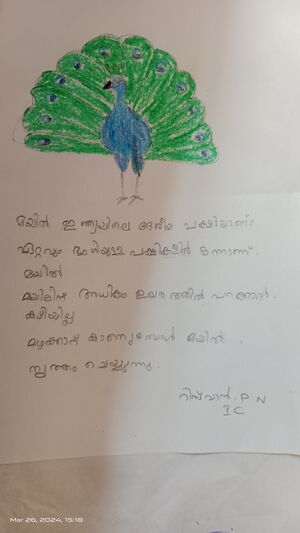 മയിൽ ഇന്ത്യയിലെ ദേശീയ പക്ഷിയാണ്.
ഏറ്റവും ഭംഗിയുള്ള പക്ഷികളിൽ ഒന്നാണ്.
മയിൽ
മയിലിന് അധികം ഉയരത്തിൽ പറക്കാൻ
കഴിയില്ല
മഴക്കാറ് കാണുമ്പോൾ മയിൽ.
നൃത്തം ചെയ്യുന്നു.
റിസ്വാൻ. P N
I C
Mar 26, 2024, 15:18